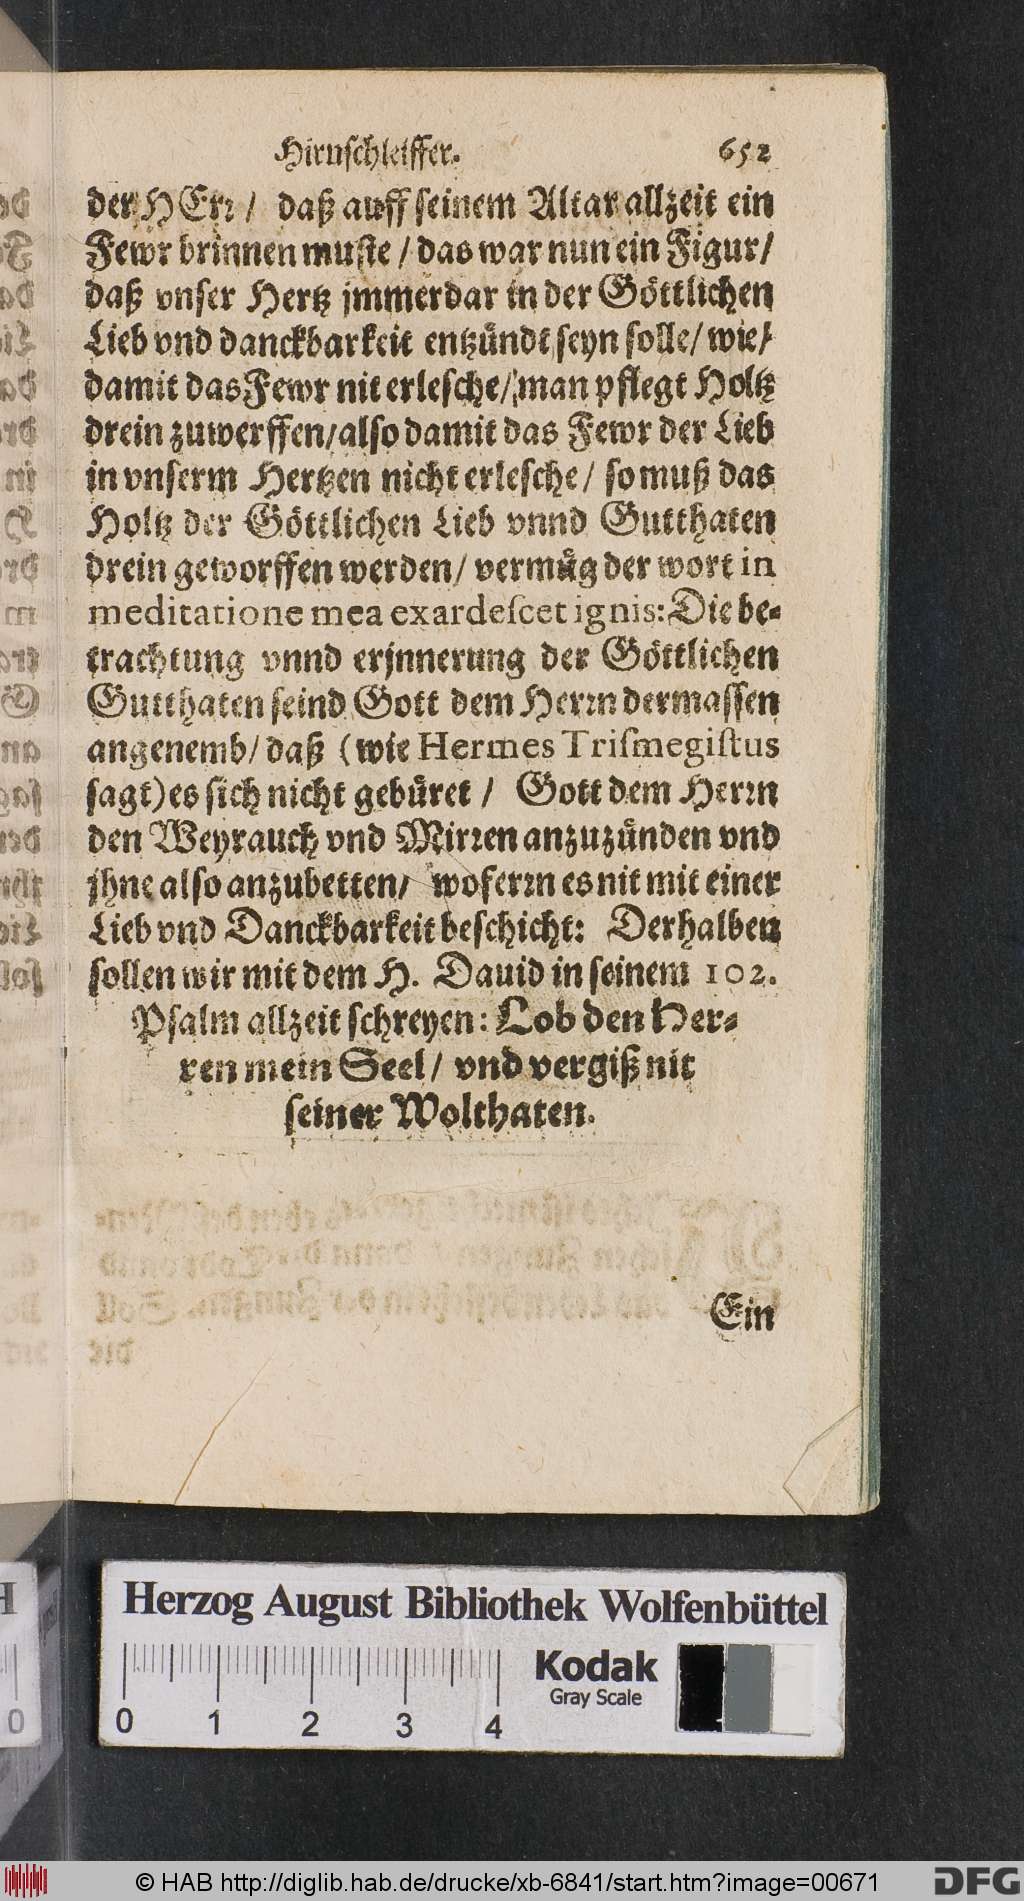 Hirnſchleiffer. 652
der HErꝛ / daß auff ſeinem Altar allzeit ein
Fewr brinnen muſte / das war nun ein Figur /
daß vnſer Hertz jmmerdar in der Göttlichen
Lieb vnd danckbarkeit entzündt ſeyn ſolle / wie /
damit das Fewr nit erleſche / man pflegt Holtz
drein zuwerffen / alſo damit das Fewr der Lieb
in vnſerm Hertzen nicht erleſche / ſo muß das
Holtz der Göttlichen Lieb vnnd Gutthaten
drein geworffen werden / vermüg der wort in
meditatione mea exardeſcet ignis: Die be⸗
trachtung vnnd erjnnerung der Göttlichen
Gutthaten ſeind Gott dem Herꝛn dermaſſen
angenemb / daß (wie Hermes Triſmegiſtus
ſagt) es ſich nicht gebüret / Gott dem Herꝛn
den Weyrauch vnd Mirꝛen anzuzünden vnd
jhne alſo anzubetten / woferꝛn es nit mit einer
Lieb vnd Danckbarkeit beſchicht: Derhalben
ſollen wir mit dem H. Dauid in ſeinem 102.
Pſalm allzeit ſchreyen: Lob den Her⸗
ren mein Seel / vnd vergiß nit
ſeiner Wolthaten.
Ein
Herzog August Bibliothek Wolfenbüttel
Kodak
Gray Scale
0 1 2 3 4
© HAB http://diglib.hab.de/drucke/xb-6841/start.htm?image=00671
DFG